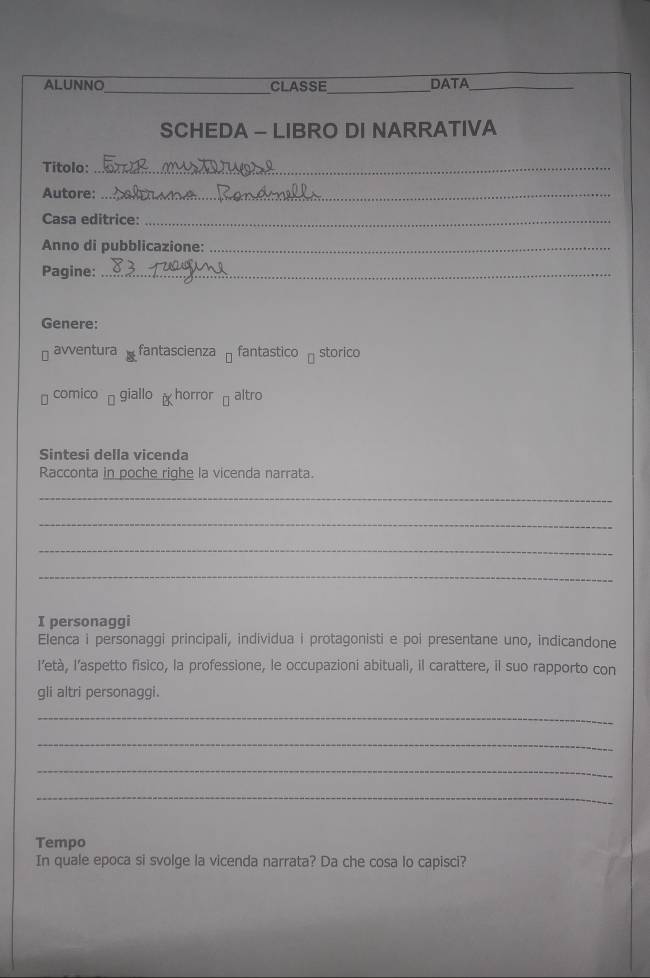 ALUNNO CLASSE DATA
SCHEDA – LIBRO DI NARRATIVA
Titolo: misteriose
Autore: Sabrina Rondinelli
Casa editrice:
Anno di pubblicazione:
Pagine: 83 pagine
Genere:
avventura fantascienza fantastico storico
comico giallo horror altro
Sintesi della vicenda
Racconta in poche righe la vicenda narrata.
I personaggi
Elenca i personaggi principali, individua i protagonisti e poi presentane uno, indicandone
l'età, l'aspetto fisico, la professione, le occupazioni abituali, il carattere, il suo rapporto con
gli altri personaggi.
Tempo
In quale epoca si svolge la vicenda narrata? Da che cosa lo capisci?